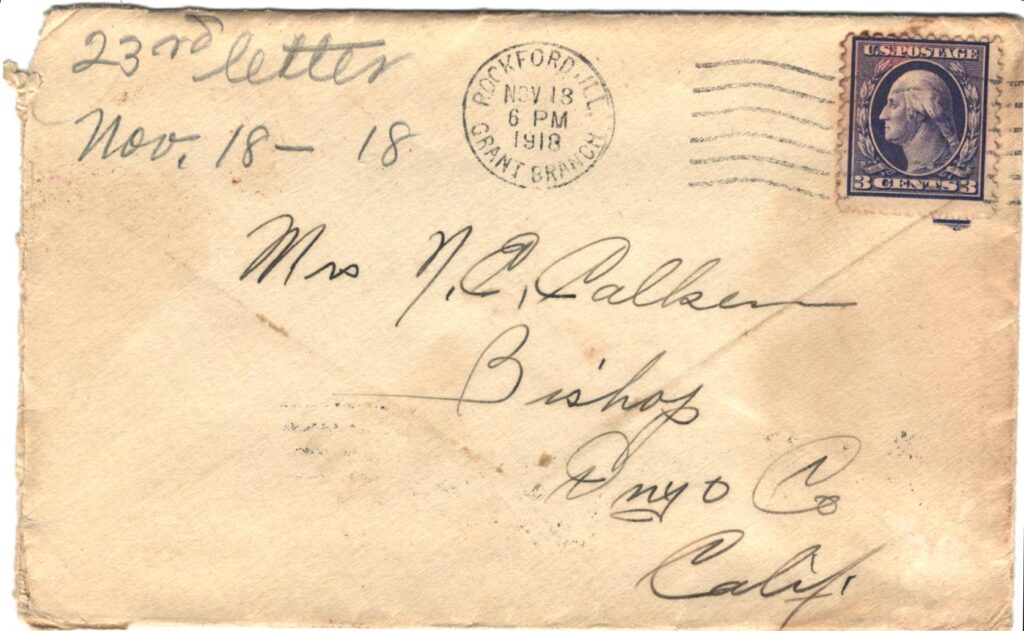 23rd letter
Nov. 18 - 18
ROCKFORD, ILL.
NOV 18
6 PM
1918
GRANT BRANCH
U.S. POSTAGE
3 CENTS 3
Mrs N. E. Calkens
Bishop
Inyo Co
Calif.